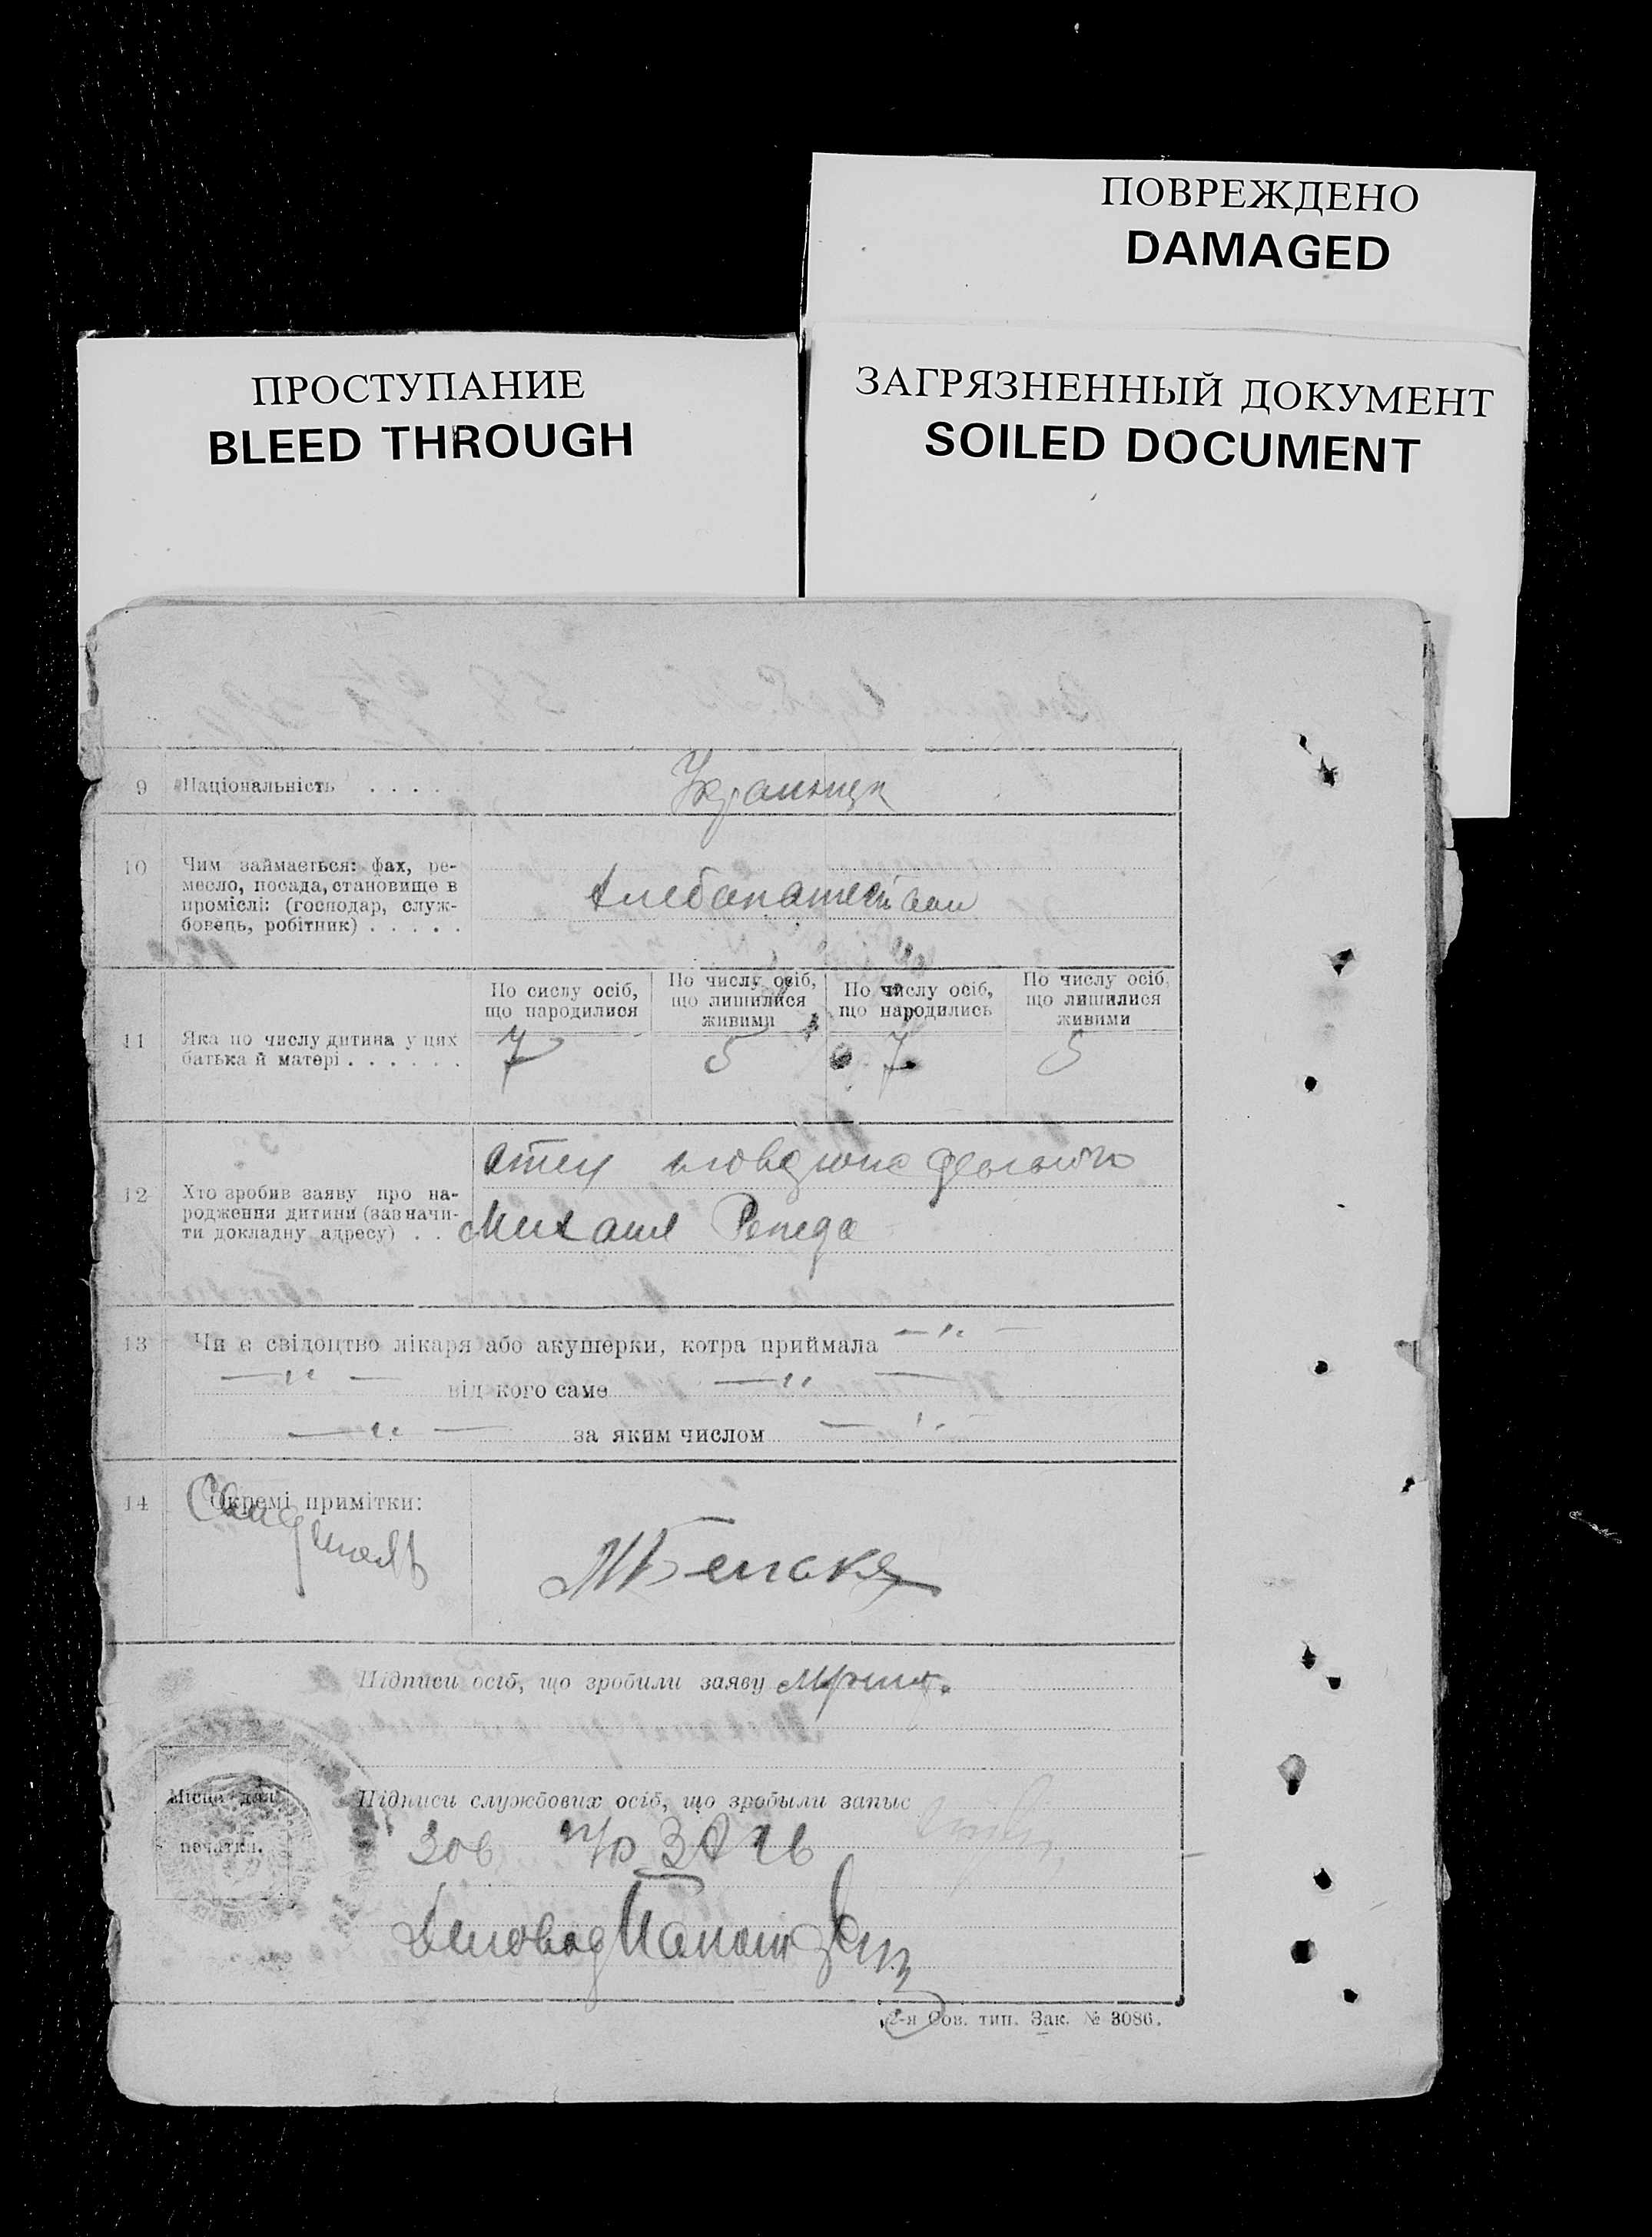 ПОВРЕЖДЕНО
DAMAGED
ПРОСТУПАНИЕ
BLEED THROUGH
ЗАГРЯЗНЕННЫЙ ДОКУМЕНТ
SOILED DOCUMENT
9 Національність . . . .
10 Чим займається: фах, ре-
месло, посада, становище в
проміслі: (господар, служ-
бовець, робітник) . . . . .
По сислу осіб,
що народилися
По числу осіб,
що лишилися
живими
По числу осіб,
що народились
По числу осіб,
що лишилися
живими
11 Яка по числу дитина у цих
батька й матері . . . . . .
7 5 7 5
12 Хто зробив заяву про на-
родження дитини (зазначи-
ти докладну адресу) . .
отец
Михаил Репеда
13 Чи є свідоцтво лікаря або акушерки, котра приймала — " —
— " — від кого саме — " —
— " — за яким числом — " —
14 Окремі примітки:
Підписи осіб, що зробили заяву
Місце для
печатки.
Підписи службових осіб, що зробыли запыс
Деловод
2-я Сов. тип. Зак. № 3086.